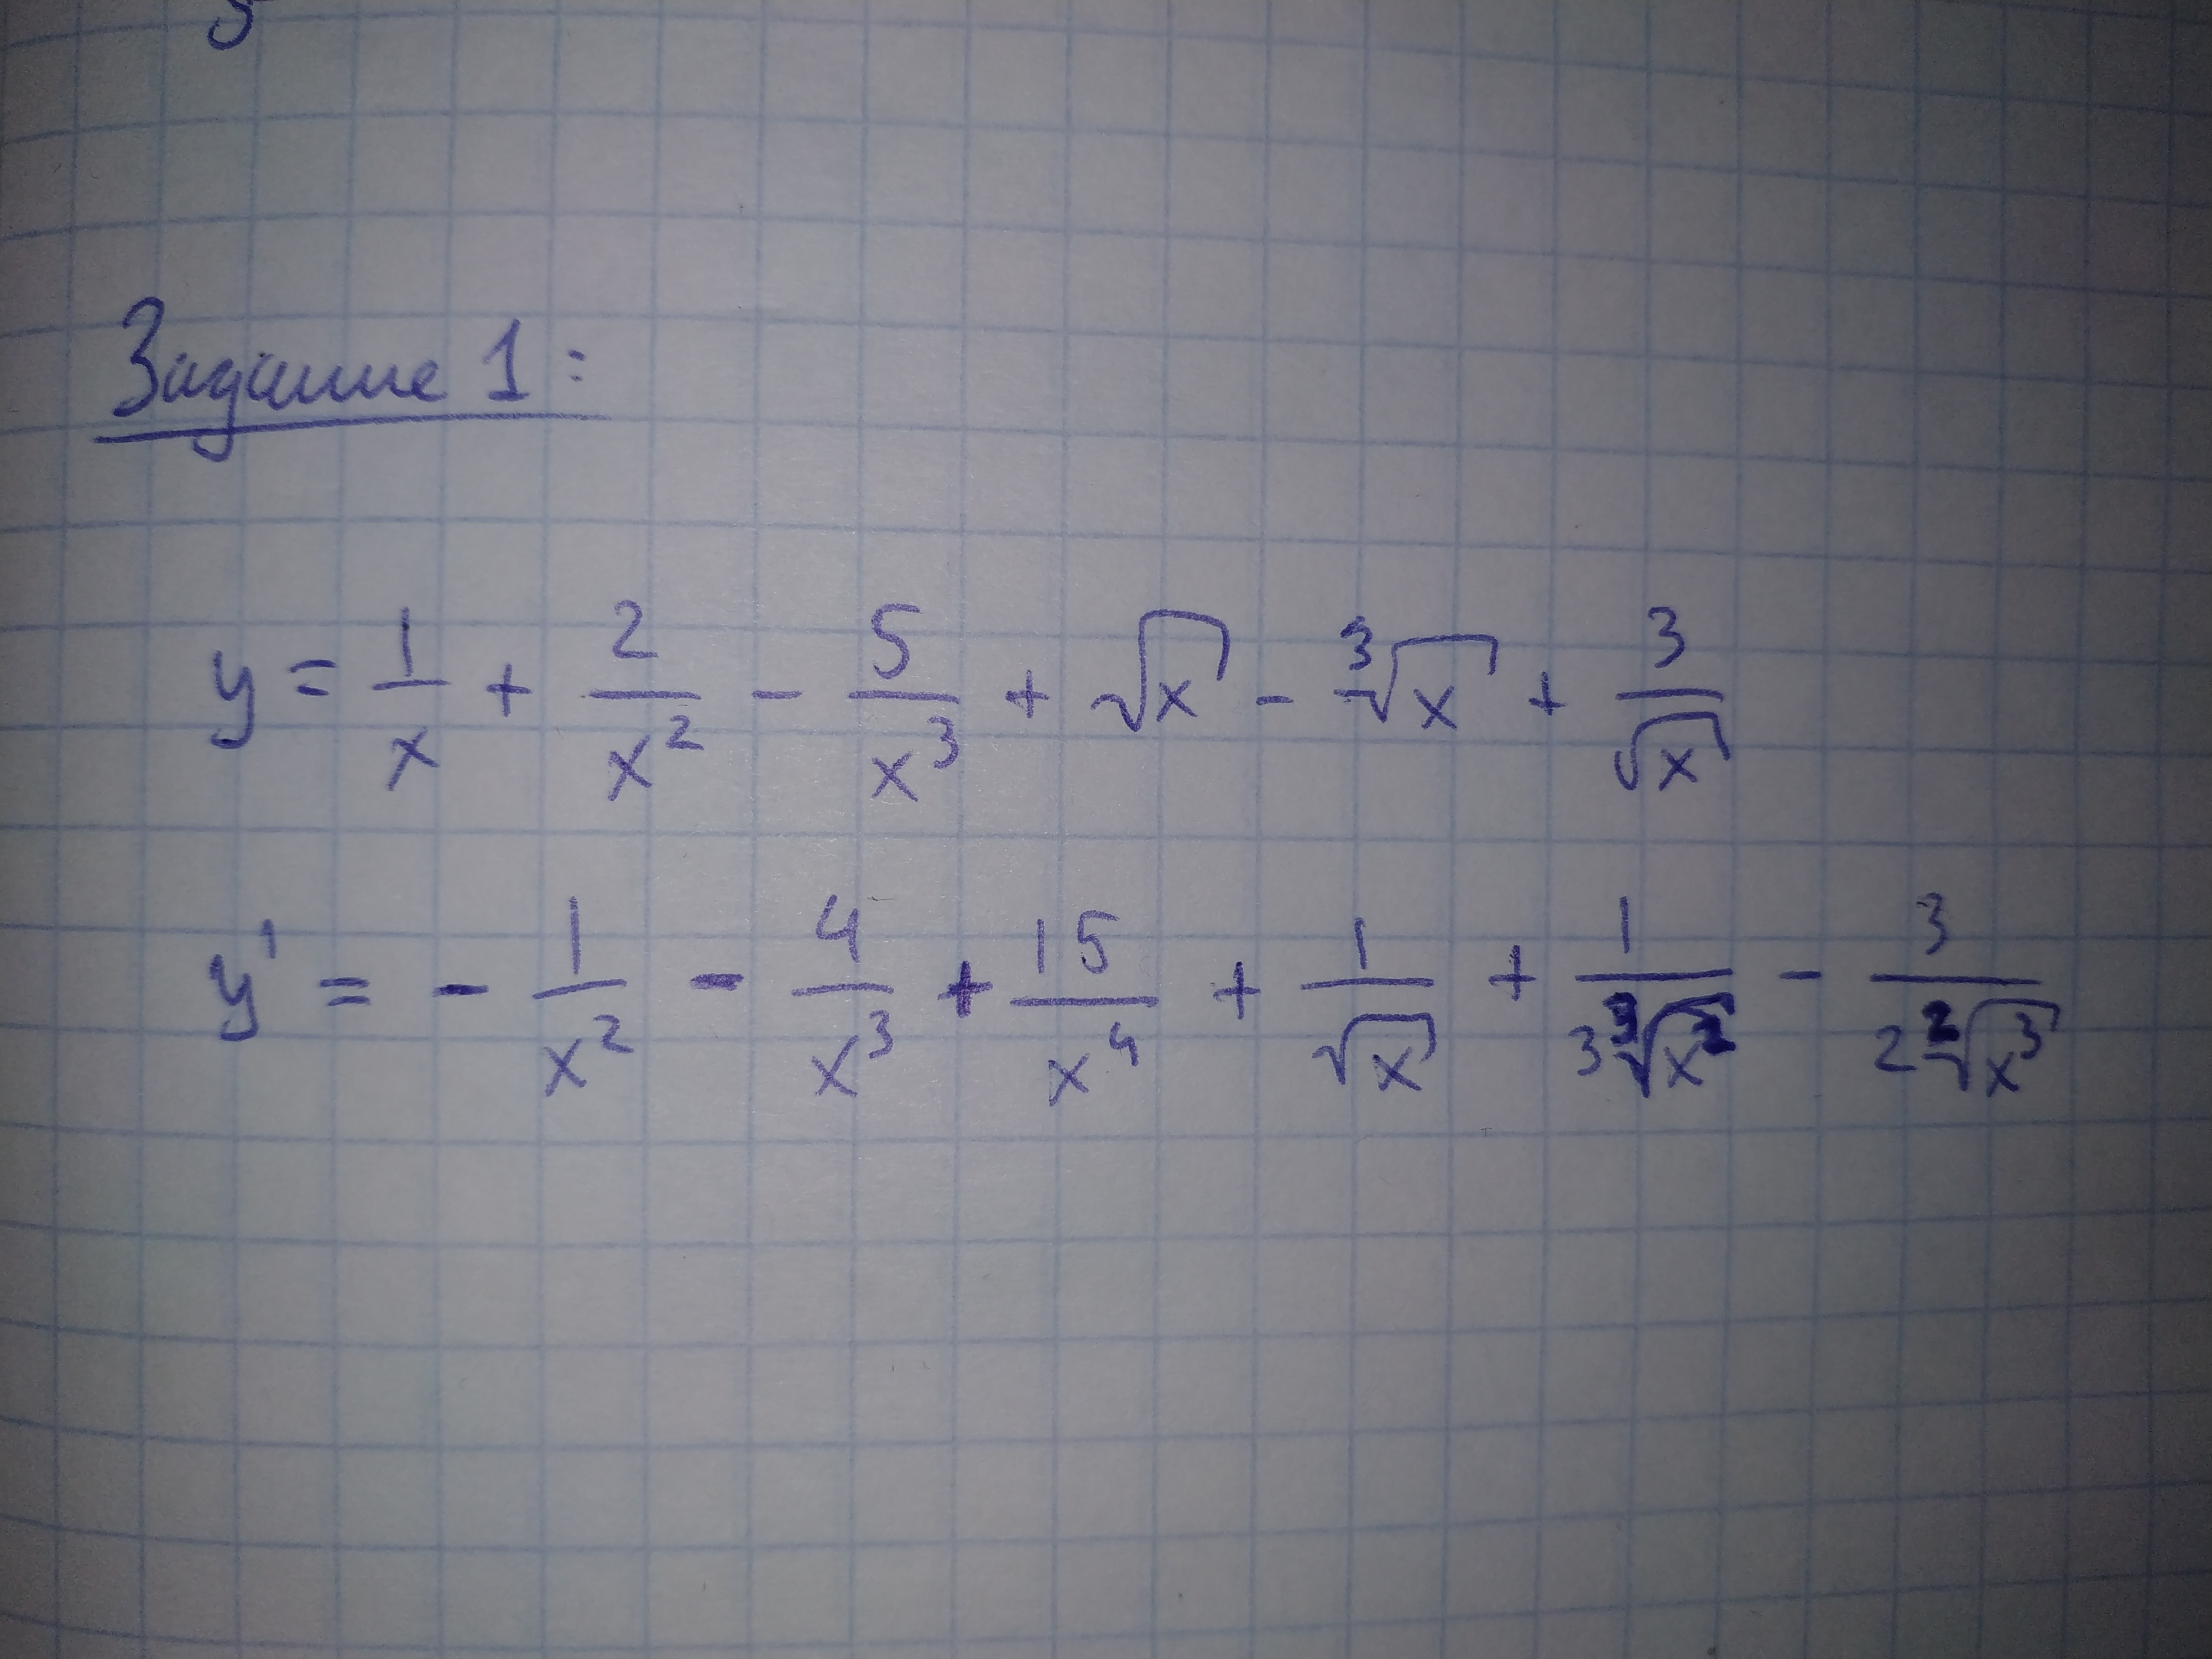 Задание 1:
y = 1/x + 2/x² - 5/x³ + √x - ³√x + 3/√x
y' = - 1/x² - 4/x³ + 15/x⁴ + 1/√x + 1/(3³√x²) - 3/(2²√x³)